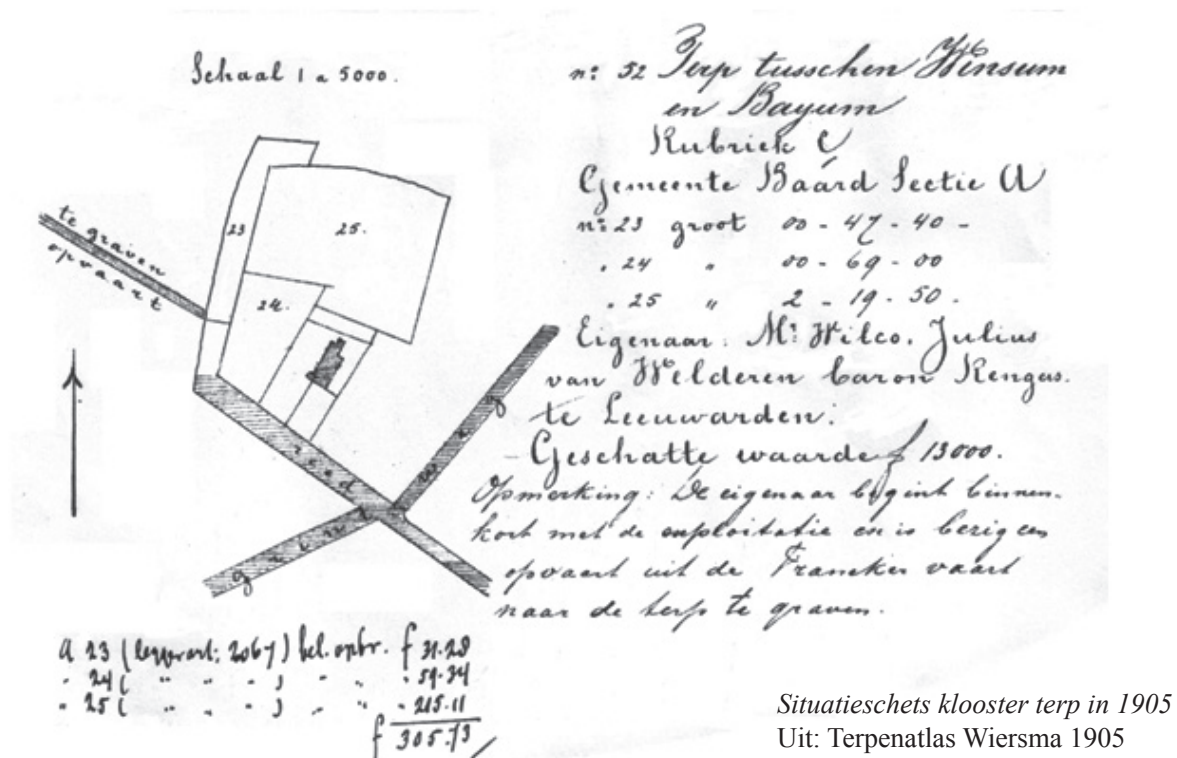 Schaal 1 a 5000.
te graven
opvaart
23
25.
24.
reed
grintweg
no: 52 Terp tusschen Winsum
en Bayum
Rubriek C
Gemeente Baard Sectie A
no: 23 groot 00 - 47 - 40 -
" 24 " 00 - 69 - 00
" 25 " 2 - 19 - 50 -
Eigenaar: Mr: Wilco, Julius
van Welderen baron Rengers.
te Leeuwarden.
Geschatte waarde f 13000.
Opmerking: De eigenaar begint binnen-
kort met de exploitatie en is bezig een
opvaart uit de Franeker vaart
naar de terp te graven.
A 23 ( : 2067) bel. opbr. f 31.28
" 24 ( " " " ) " " " 59.34
" 25 ( " " " ) " " " 215.11
f 305.73
Situatieschets klooster terp in 1905
Uit: Terpenatlas Wiersma 1905